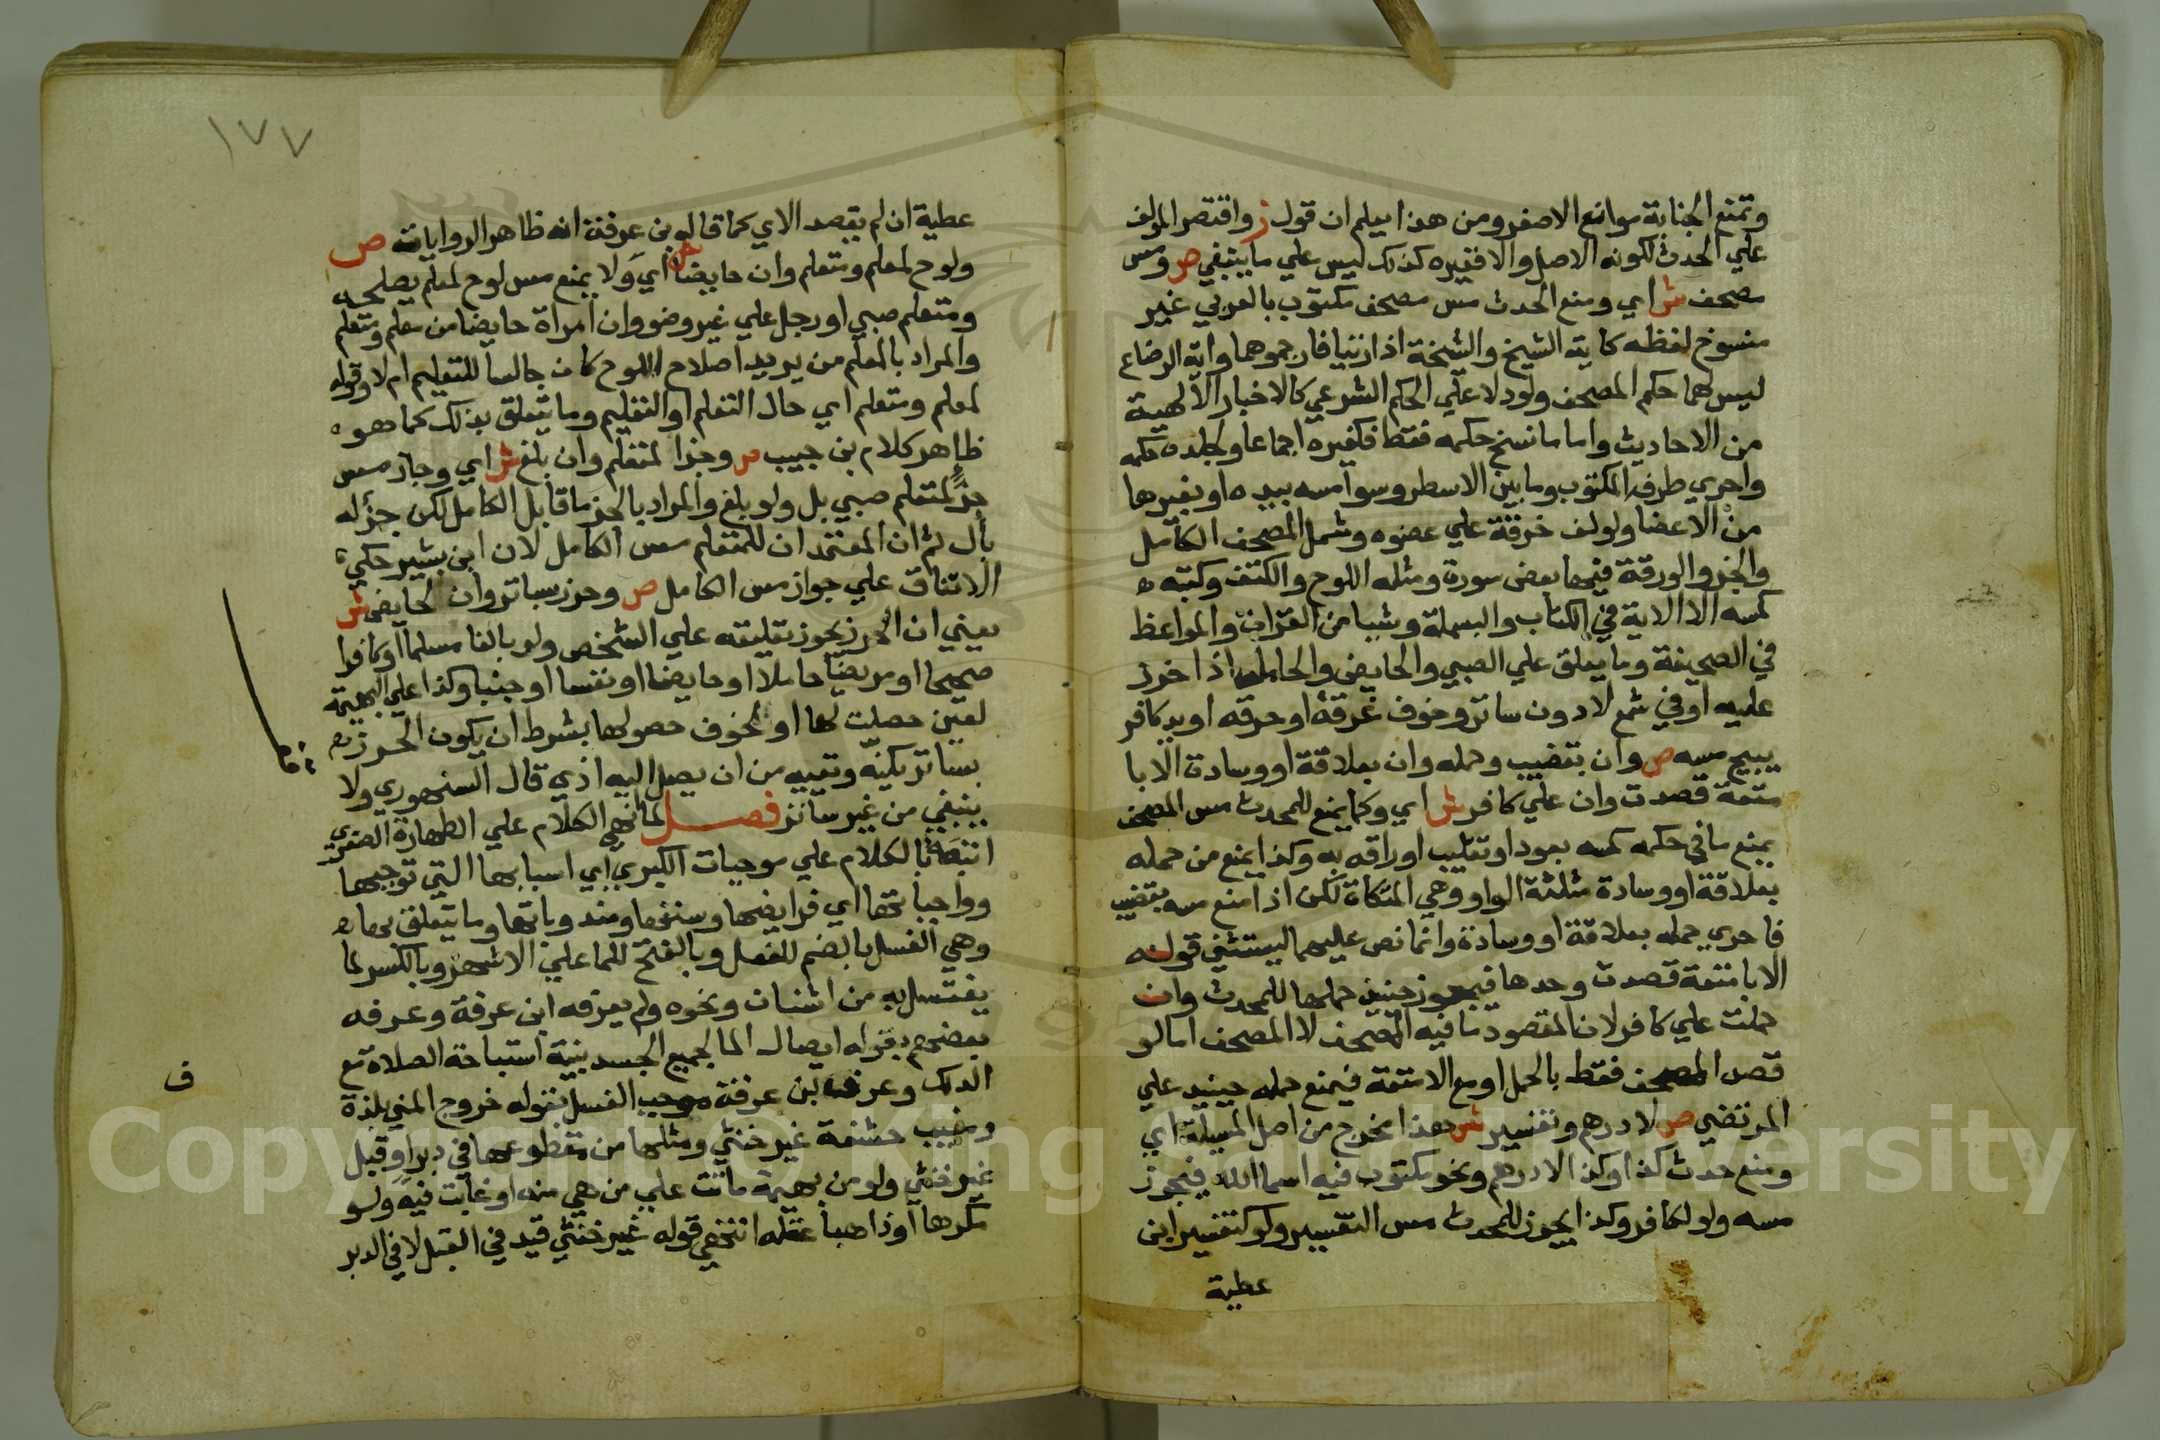 وتمنع الجنابة موانع الاصغر ومن هذا يعلم ان قول ز واقتصر المولف
علي الحدث لكونه الاصل والا فغيره كذلك ليس علي ما ينبغي ص ومس
مصحف ش اي ومنع الحدث مس مصحف مكتوب بالعربي غير
منسوخ لفظه كاية الشيخ والشيخة اذا زنيا فارجموهما واية الرضاع
ليس لهما حكم المصحف ولو دلا علي الحكم الشرعي كالاخبار الالهية
من الاحاديث واما ما نسخ حكمه فقط فكغيره اجماعا ولجلده حكمه
واحري طرف المكتوب وما بين الاسطر وسوا مسه بيده او بغيرها
من الاعضا ولو لف خرقة علي عضوه وشمل المصحف الكامل
والجز والورقة فيها بعض سورة ومثله اللوح والكتف وكتبه
كمسه الا الاية في الكتاب والبسملة وشيا من القران والمواعظ
في الصحيفة وما يعلق علي الصبي والحايض والحامل اذا خرز
عليه او في شمع لا دون ساتر وخوف غرقه او حرقه او يد كافر
يبيح مسه ص وان بقضيب وحمله وان بعلاقة او وسادة الا با
متعة قصدت وان علي كافر ش اي وكما يمنع للمحدث مس المصحف
يمنع ما في حكمه كمسه بعود او تقليب اوراقه به وكذا يمنع من حمله
بعلاقة او وسادة مثلثة الواو وهي المتكاة لكن اذا منع مسه بقضيب
فاحري حمله بعلاقة او وسادة وانما نص عليهما ليستثني قوله
الا بامتعة قصدت وحدها فيجوز حينيذ حملها للمحدث وان
حملت علي كافر لان المقصود ما فيه المصحف لا المصحف اما لو
قصد المصحف فقط بالحمل او مع الامتعة فيمنع حمله حينيذ علي
المرتضي ص لا درهم وتفسير ش هذا مخرج من اصل المسيلة اي
ومنع حدث كذا وكذا لا درهم ونحو مكتوب فيه اسما الله فيجوز
مسه ولو لكافر وكذا يجوز للمحدث مس التفسير ولو كتفسير ابن
عطية
١٧٧
عطية ان لم يقصد الاي كما قاله بن عرفة انه ظاهر الروايات ص
ولوح لمعلم ومتعلم وان حايضا ش اي ولا يمنع مس لوح لمعلم يصلحه
ومتعلم صبي او رجل علي غير وضو وان امراة حايضا من معلم ومتعلم
والمراد بالمعلم من يريد اصلاح اللوح كان جالسا للتعليم ام لا وقوله
لمعلم ومتعلم اي حال التعلم او التعليم وما يتعلق بذلك كما هو
ظاهر كلام بن حبيب ص وجزا لمتعلم وان بلغ ش اي وجاز مس
جز لمتعلم صبي بل ولو بلغ والمراد بالجز ما قابل الكامل لكن جزله
بال ثم ان المعتمد ان للمتعلم مس الكامل لان ابن بشير حكي
الاتفاق علي جواز مس الكامل ص وحرز بساتر وان لحايض ش
يعني ان الحرز يجوز تعليقه علي الشخص ولو بالغا مسلما او كافرا
صحيحا او مريضا حاملا او حايضا او نفسا او جنبا وكذا علي البهيمة
لعين حصلت لها او لخوف حصولها بشرط ان يكون الحرز
بساتر يكنه ويقيه من ان يصل اليه اذي قال السنهوري ولا
ينبغي من غير ساتر فصل لما انهي الكلام علي الطهارة الصغري
اتبعه بالكلام علي موجبات الكبري اي اسبابها التي توجبها
وواجباتها اي فرايضها وسننها ومندوباتها وما يتعلق بها
وهي الغسل بالضم للفعل وبالفتح للما علي الاشهر وبالكسر لما
يغتسل به من اشنان ونحوه ولم يعرفه ابن عرفة وعرفه
بعضهم بقوله ايصال الما لجميع الجسد بنية استباحة الصلاة مع
الدلك وعرف بن عرفة موجب الغسل بقوله خروج المني بلذة
ومغيب حشفة غير خنثي ومثلها من مقطوعها في دبر او قبل
غير خنثي ولو من بهيمة ماتت علي من هي منه او غابت فيه ولو
مكرها او ذاهبا عقله انتهي قوله غير خنثي قيد في القبل لا في الدبر
ف
Copyright © King Saud University